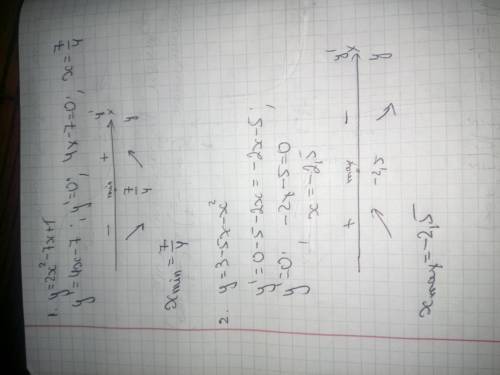 1. y=2x²-7x+1
y'=4x-7; y'=0; 4x-7=0; x=7/4
- min + y' x
7/4 y
x min = 7/4
2. y=3-5x-x²
y'=0-5-2x=-2x-5;
y'=0; -2x-5=0
x=-2,5
+ max - y' x
-2,5 y
x max = -2,5